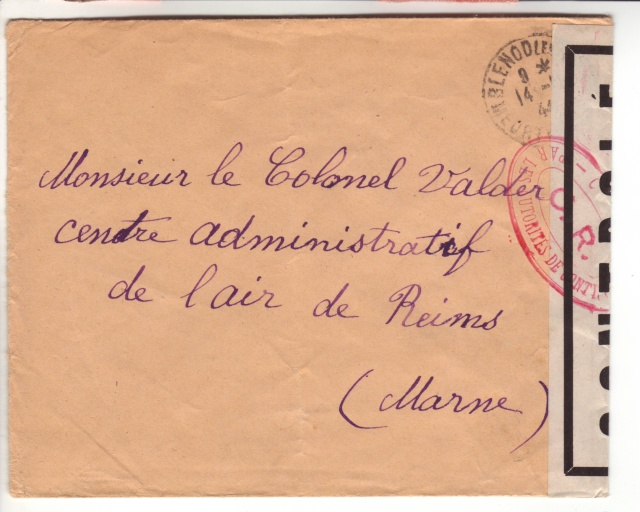 BLENOD
9 *
14
44
MEURT
Monsieur le Colonel Valder
centre administratif
de l'air de Reims
(Marne)
PAR LES AUTORITÉS DE CONT
C. R.
CONTROLE